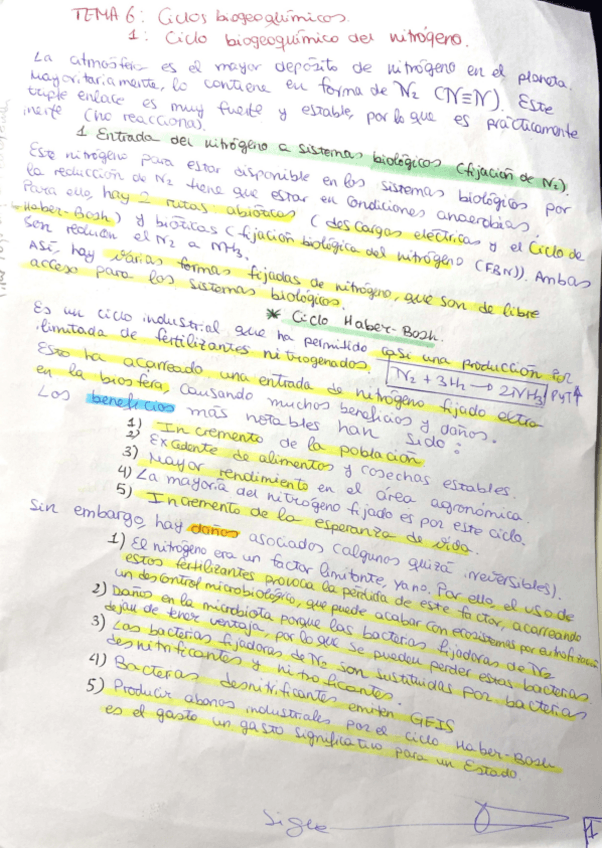 TEMA 6: Ciclos biogeoquímicos.
1: Ciclo biogeoquímico del nitrógeno.
La atmósfera es el mayor depósito de nitrógeno en el planeta.
Mayoritariamente, lo contiene en forma de N₂ (N≡N). Este
triple enlace es muy fuerte y estable, por lo que es prácticamente
inerte (no reacciona).
1 Entrada del nitrógeno a sistemas biológicos (fijación de N₂).
Este nitrógeno para estar disponible en los sistemas biológicos por
la reducción de N₂ tiene que estar en condiciones anaerobias.
Para ello, hay 2 rutas: abióticas (descargas eléctricas y el Ciclo de
Haber-Bosh) y bióticas (fijación biológica del nitrógeno (FBN)). Ambas
son reducir el N₂ a NH₃.
Así, hay varias formas fijadas de nitrógeno, que son de libre
acceso para los sistemas biológicos.
* Ciclo Haber-Bosh.
Es un ciclo industrial que ha permitido casi una producción
ilimitada de fertilizantes nitrogenados. N₂ + 3H₂ → 2NH₃ / PyT↑
Esto ha acarreado una entrada de nitrógeno fijado extra
en la biosfera, causando muchos beneficios y daños.
Los beneficios más notables han sido:
1) Incremento de la población
2) Excedente de alimentos y cosechas estables.
3) Mayor rendimiento en el área agronómica.
4) La mayoría del nitrógeno fijado es por este ciclo.
5) Incremento de la esperanza de vida.
Sin embargo, hay daños asociados (algunos quizá irreversibles).
1) El nitrógeno era un factor limitante, ya no. Por ello, el uso de
estos fertilizantes provoca la pérdida de este factor, acarreando
un descontrol microbiológico, que puede acabar con ecosistemas por eutrofización
2) Daños en la microbiota porque las bacterias fijadoras de N₂
dejan de tener ventaja, por lo que se pueden perder estas bacterias.
3) Las bacterias fijadoras de N₂ son sustituidas por bacterias
desnitrificantes y nitrificantes.
4) Bacterias desnitrificantes emiten GEIS
5) Producir abonos industriales por el ciclo Haber-Bosh
es el gasto un gasto significativo para un Estado.
Sigue
1